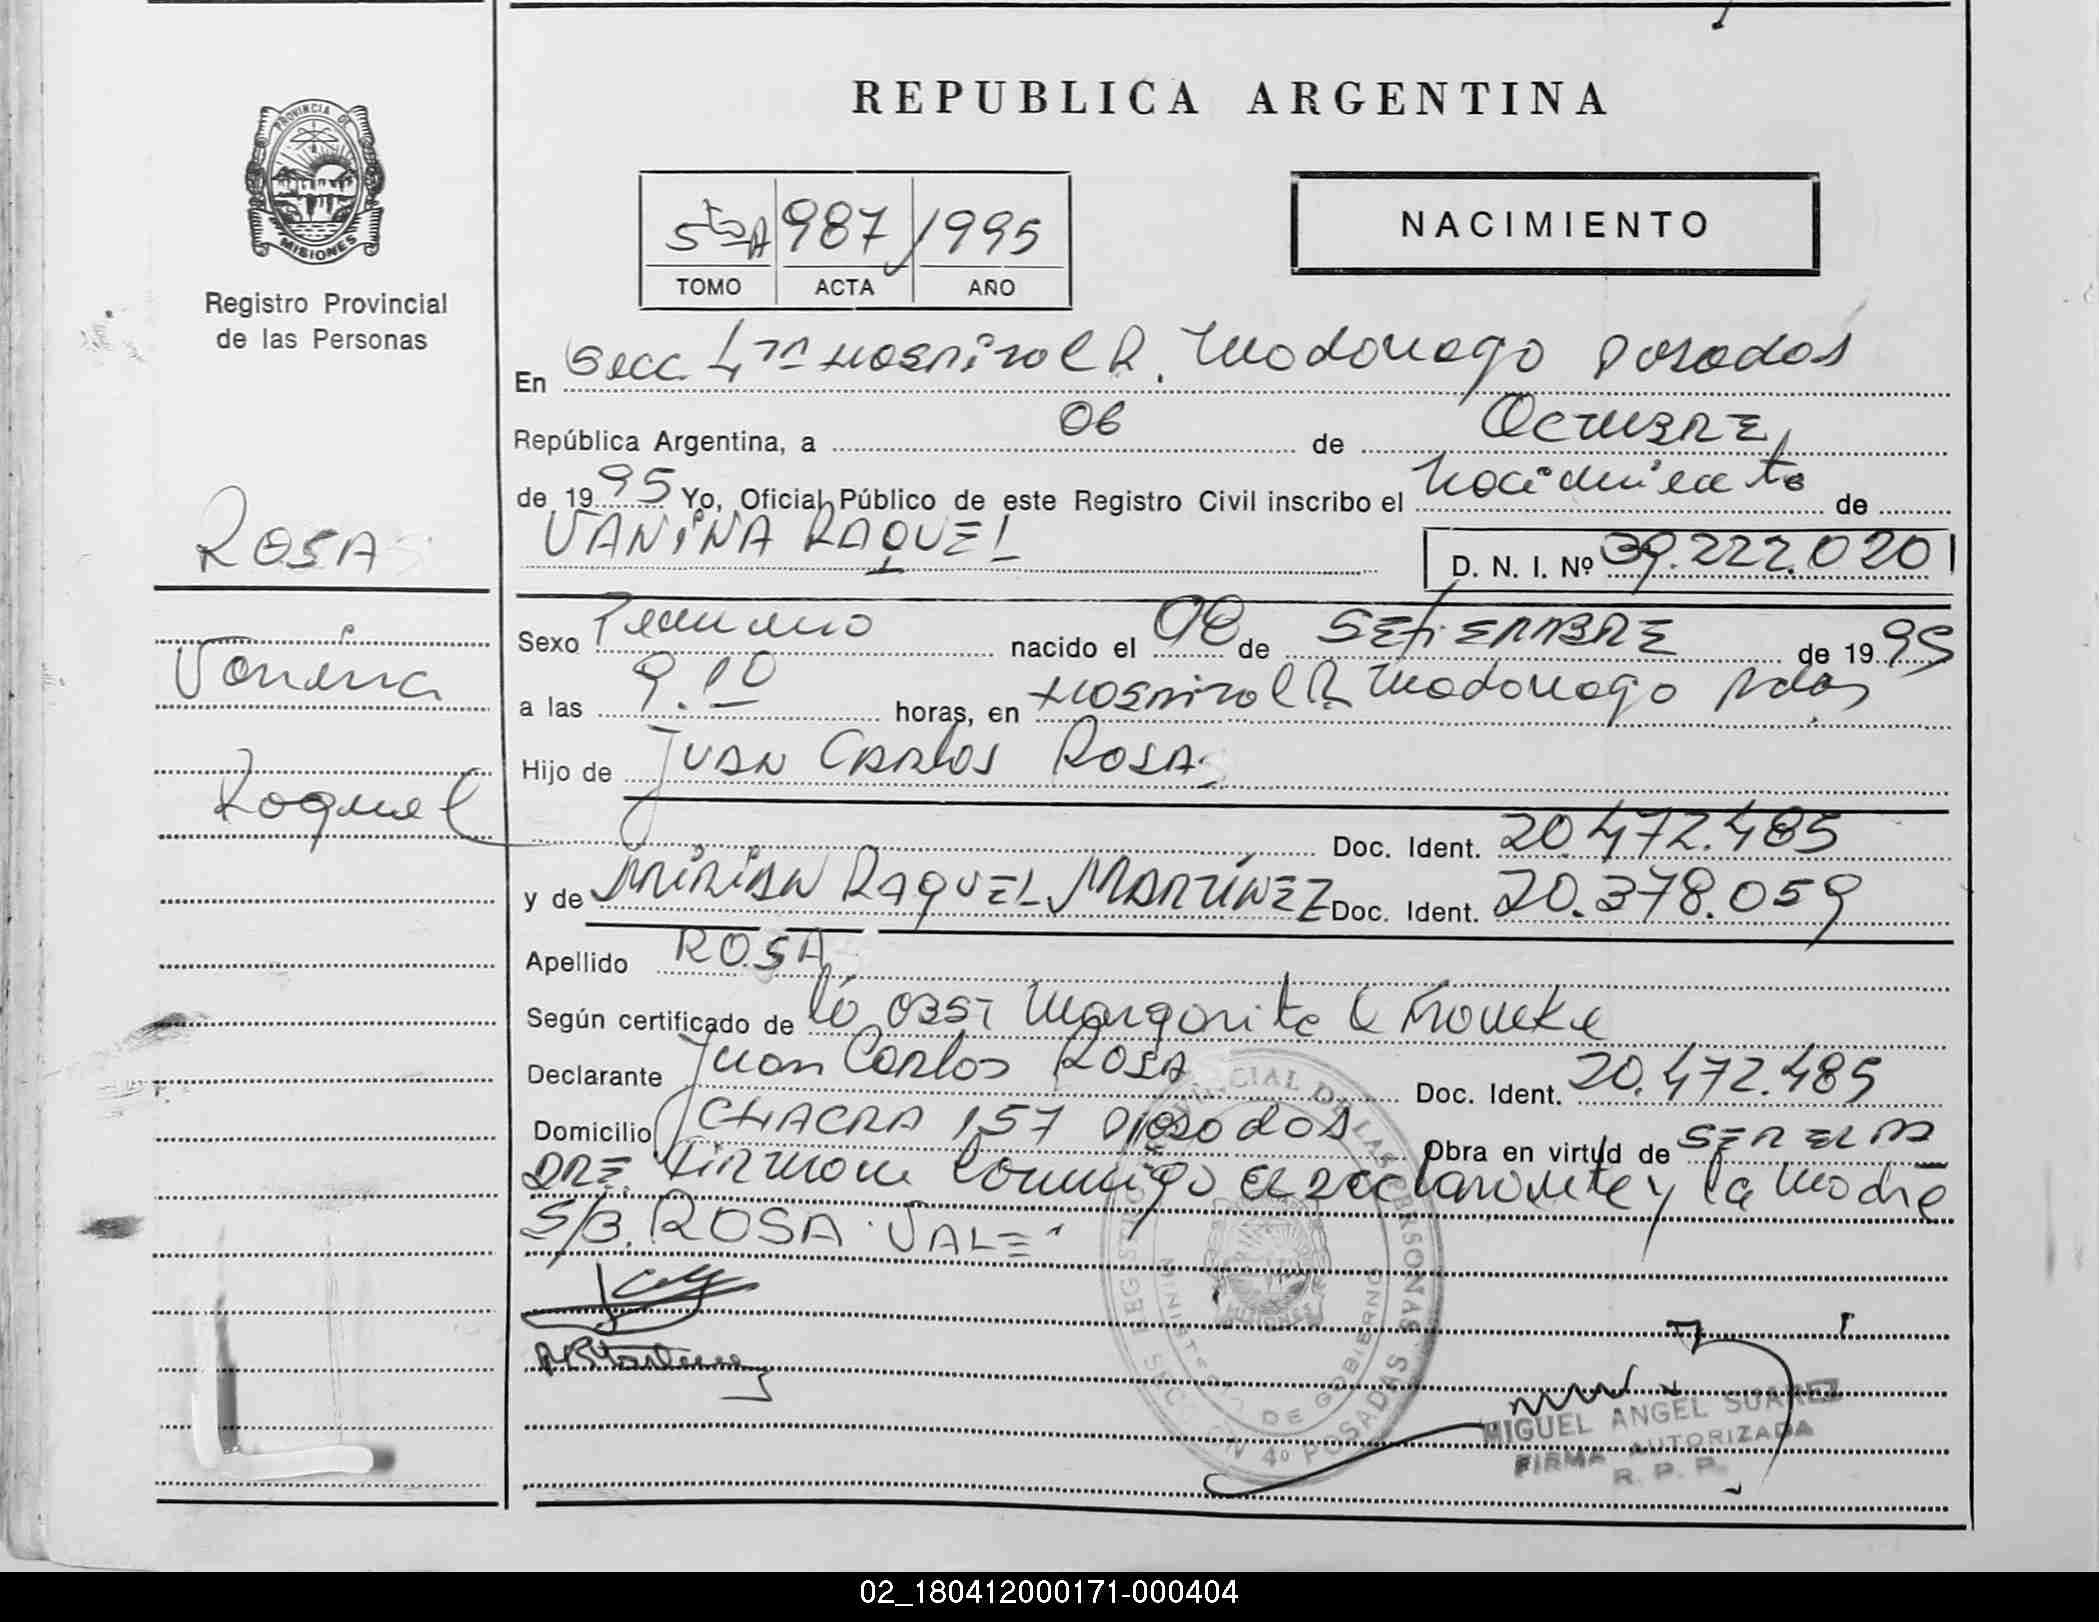 REPUBLICA ARGENTINA
PROVINCIA DE
MISIONES
Registro Provincial
de las Personas
5ta A 987 / 1995
TOMO ACTA AÑO
NACIMIENTO
En Secc. 4ta Hospital R. Madariaga Posadas
República Argentina, a 06 de Octubre
de 1995 Yo, Oficial Público de este Registro Civil inscribo el Nacimiento de
VANINA RAQUEL D. N. I. Nº 39.222.020
ROSA
Vanina
Raquel
Sexo Femenino nacido el 08 de SETIEMBRE de 1995
a las 9.10 horas, en Hospital R. Madariaga Pdas
Hijo de JUAN CARLOS ROSA
Doc. Ident. 20.472.485
y de MIRIAN RAQUEL MARTÍNEZ Doc. Ident. 20.378.059
Apellido ROSA
Según certificado de la OBST Margarita Franeke
Declarante Juan Carlos ROSA Doc. Ident. 20.472.485
Domicilio CHACRA 157 Posadas Obra en virtud de SER EL PA
DRE. Firman conmigo el declarante y la madre
S/B. ROSA VALE
REGISTRO PROVINCIAL DE LAS PERSONAS
MINISTERIO DE GOBIERNO
MISIONES
SECCION 4º POSADAS
MIGUEL ANGEL SUAREZ
FIRMA AUTORIZADA
R. P. P.
02_180412000171-000404